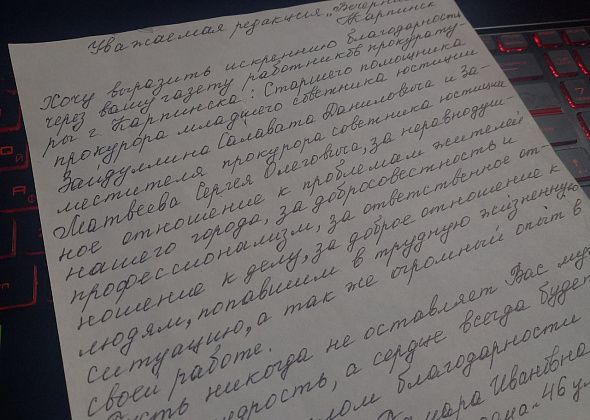 Уважаемая редакция „Вечерний
Карпинск
Хочу выразить искреннюю благодарность
через вашу газету работников прокурату-
ры г. Карпинска: Старшего помощника
прокурора младшего советника юстиции
Зайдуллина Салавата Даниловича и за-
местителя прокурора советника юстиции
Матвеева Сергея Олеговича, за неравнодуш-
ное отношение к проблемам жителей
нашего города, за добросовестность и
профессионализм, за ответственное от-
ношение к делу, за доброе отношение к
людям, попавшим в трудную жизненную
ситуацию, а так же огромный опыт в
своей работе.
Пусть никогда не оставляет Вас
мудрость, а сердце всегда будет
благодарности
Ивановна
46